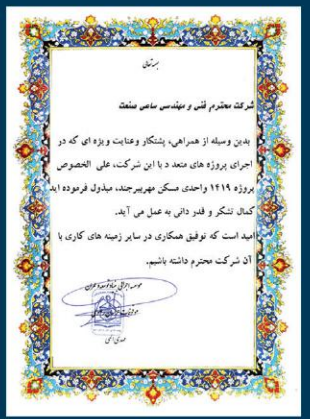 بسمه تعالی
شرکت محترم فنی و مهندسی ساعی صنعت
بدین وسیله از همراهی، پشتکار وعنایت ویژه ای که در
اجرای پروژه های متعدد با این شرکت، علی الخصوص
پروژه ۱۴۱۹ واحدی مسکن مهربیرجند، مبذول فرموده اید
کمال تشکر و قدر دانی به عمل می آید.
امید است که توفیق همکاری در سایر زمینه های کاری با
آن شرکت محترم داشته باشیم.